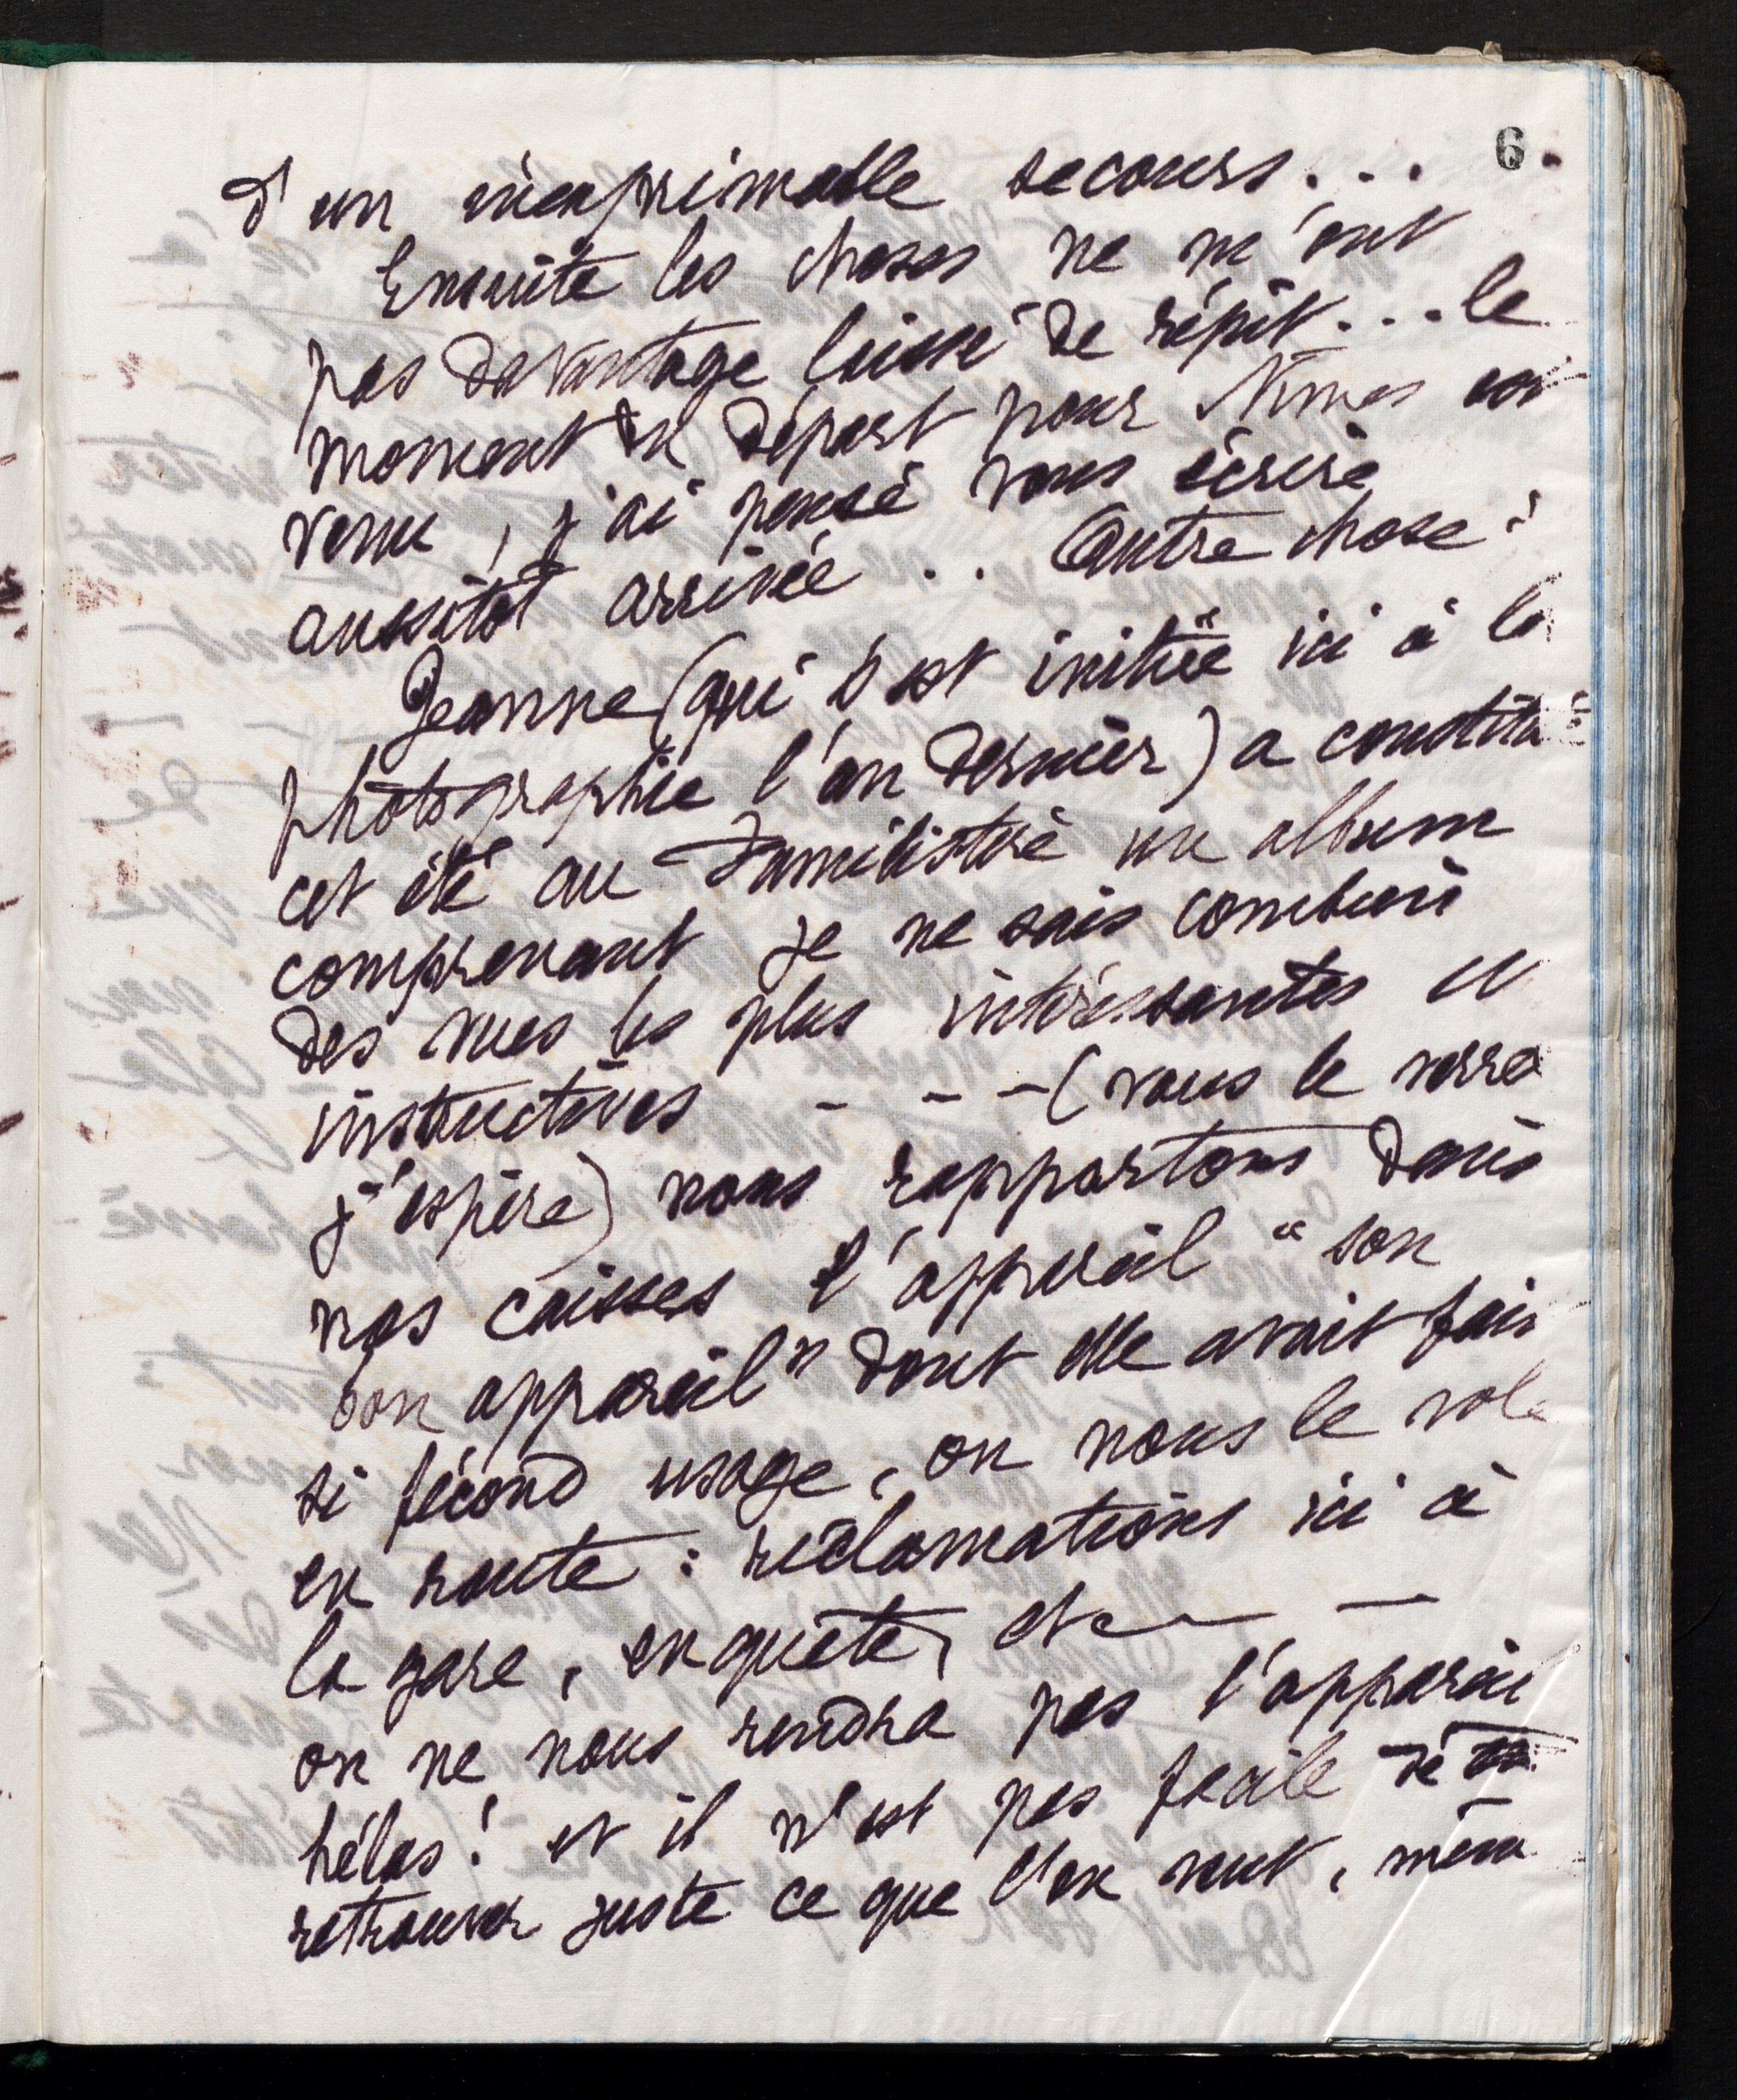 6
d'un inexprimable secours...
Ensuite les choses ne m'ont
pas davantage laissé de répit... le
moment du départ pour Nîmes
venu, j'ai pensé vous écrire
aussitôt arrivée .. Autre chose :
Jeanne (qui s'est initiée ici à la
photographie l'an dernier) a constitu
cet été au Familistère un album
comprenant je ne sais combien
des vues les plus intéressantes et
instructives - - - (vous le verrez
j'espère) nous rapportons dans
nos caisses l'appareil " son
bon appareil" dont elle avait fait
si fécond usage, on nous le vole
en route : réclamations ici à
la gare, enquête, etc —
on ne nous rendra pas l'appareil
hélas ! et il n'est pas facile de
retrouver juste ce que l'on veut, même